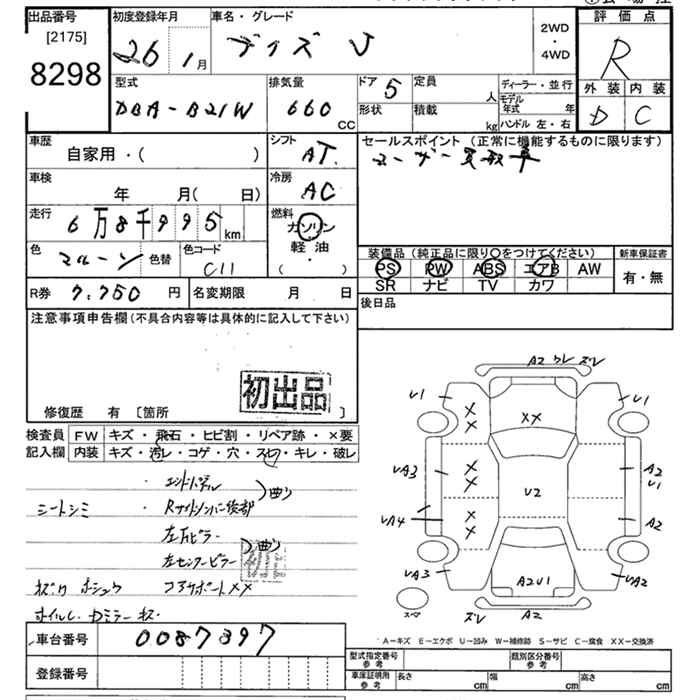 出品番号
[2175]
8298
初度登録年月
26 年 1月
車名・グレード
デイズ J
2WD
・
4WD
評価点
R
外装 内装
D C
型式
DBA-B21W
排気量
660
CC
ドア 5
定員
人
形状
積載
kg
ディーラー・並行
モデル年式 年
ハンドル 左・右
車歴
自家用・( )
シフト
AT
セールスポイント (正常に機能するものに限ります)
ユーザー買取車
車検
年 月( 日)
冷房
AC
走行
6万8千995km
燃料
ガソリン
軽・油
( )
色
マルーン
色替
色コード
C11
装備品 (純正品に限り○をつけてください)
PS PW ABS エアB AW
SR ナビ TV カワ
新車保証書
有・無
R券 7.750 円
名変期限 月 日
後日品
注意事項申告欄(不具合内容等は具体的に記入して下さい)
初出品
修復歴 有 [箇所 ]
検査員 FW キズ・飛石・ヒビ割・リペア跡・×要
記入欄 内装 キズ・汚レ・コゲ・穴・スレ・キレ・破レ
・エンドパネル
)曲り
シートシミ
・Rサイドメンバー後部
左Fピラー
)曲り
左センターピラー
コアサポートXX
ホイル、Rミラーキズ
車台番号 0087397
登録番号
A2 ワレ ズレ
U1
U1
XX
X
X
UA3
X
X
A2
U1
U2
UA4
X
X
A2
UA3
A2U1
UA2
スペア
ズレ
A2
A-キズ E-エクボ U-凹み W-補修跡 S-サビ C-腐食 XX-交換済
型式指定番号
参考
類別区分番号
参考
車庫証明用
参考
長さ cm 幅 cm 高さ cm